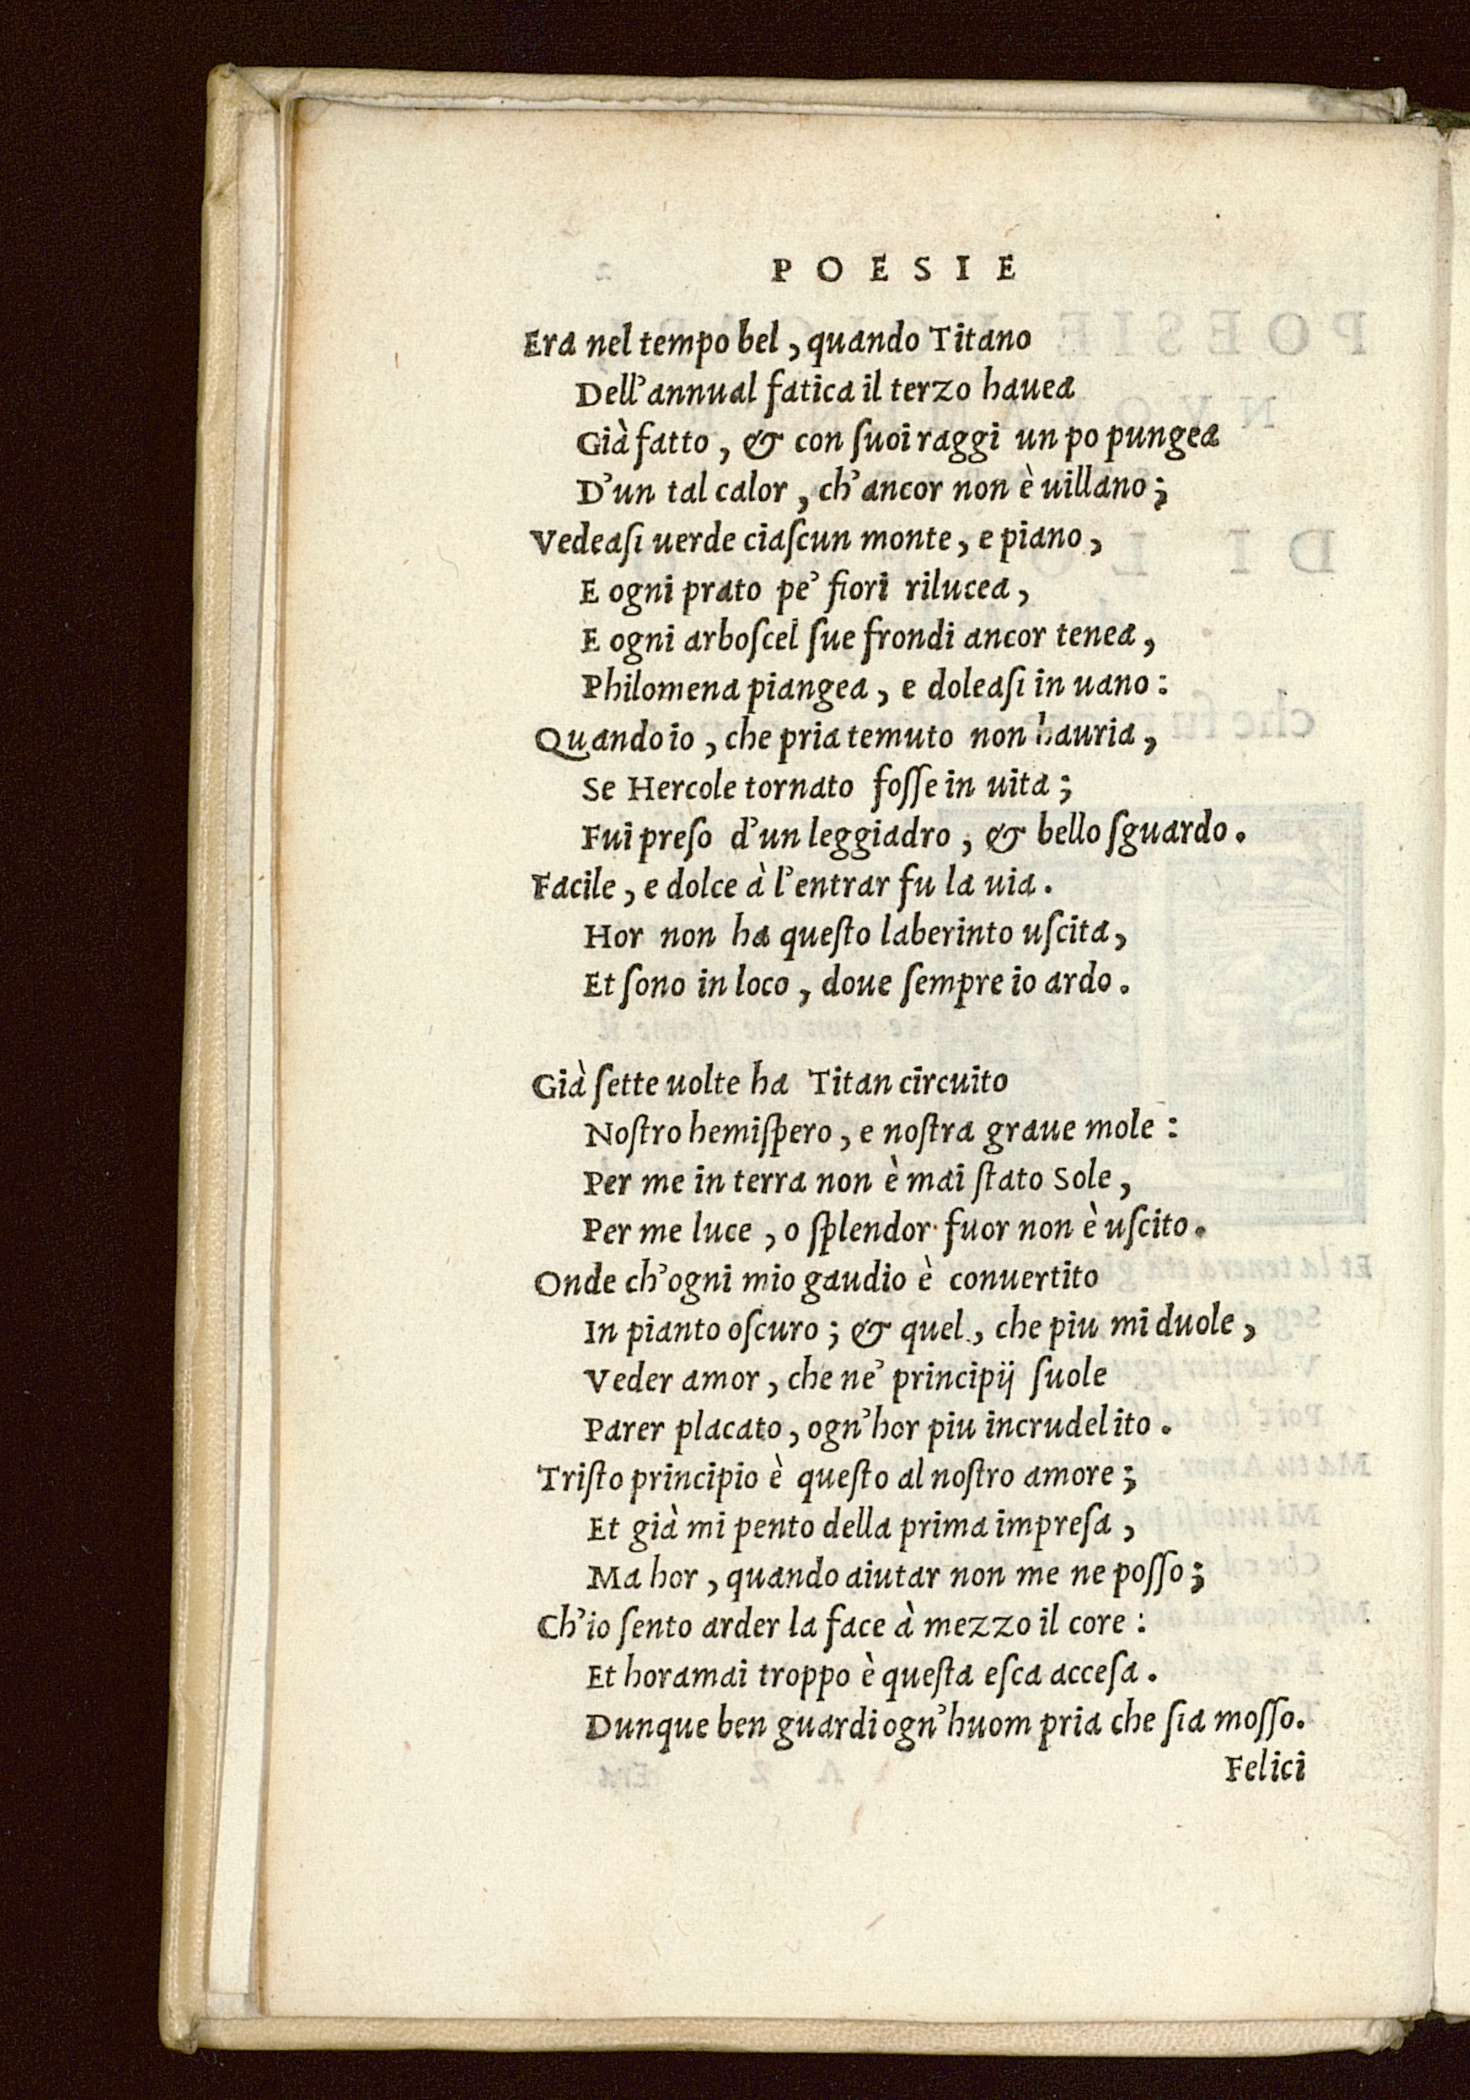 POESIE
Era nel tempo bel, quando Titano
Dell'annual fatica il terzo hauea
Già fatto, & con ſuoi raggi un po pungea
D'un tal calor, ch'ancor non è uillano;
Vedeaſi uerde ciaſcun monte, e piano,
E ogni prato pe' fiori rilucea,
E ogni arboſcel ſue frondi ancor tenea,
Philomena piangea, e doleaſi in uano:
Quando io, che pria temuto non hauria,
Se Hercole tornato foſſe in uita;
Fui preſo d'un leggiadro, & bello ſguardo.
Facile, e dolce à l'entrar fu la uia.
Hor non ha queſto laberinto uſcita,
Et ſono in loco, doue ſempre io ardo.
Già ſette uolte ha Titan circuito
Noſtro hemiſpero, e noſtra graue mole:
Per me in terra non è mai ſtato Sole,
Per me luce, o ſplendor fuor non è uſcito.
Onde ch'ogni mio gaudio è conuertito
In pianto oſcuro; & quel, che piu mi duole,
Veder amor, che ne' principij ſuole
Parer placato, ogn'hor piu incrudelito.
Triſto principio è queſto al noſtro amore;
Et già mi pento della prima impreſa,
Ma hor, quando aiutar non me ne poſſo;
Ch'io ſento arder la face à mezzo il core:
Et horamai troppo è queſta eſca acceſa.
Dunque ben guardi ogn'huom pria che ſia moſſo.
Felici